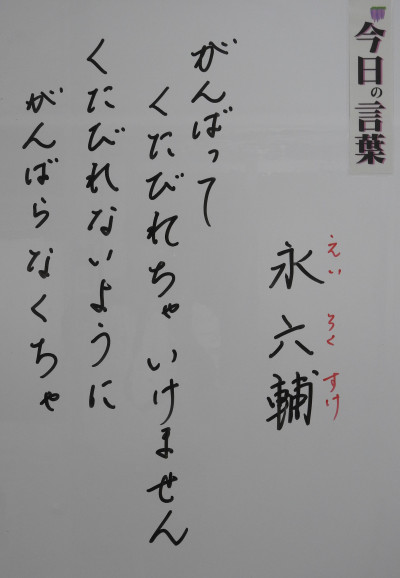 今日の言葉
永六輔
えいろくすけ
がんばって
くたびれちゃいけません
くたびれないように
がんばらなくちゃ